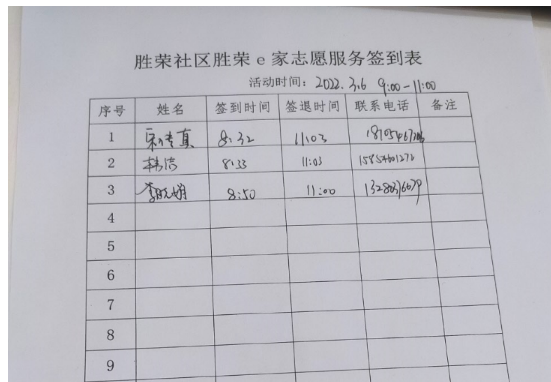 胜荣社区胜荣 e 家志愿服务签到表
活动时间：2022.3.6 9:00-11:00
序号 姓名 签到时间 签退时间 联系电话 备注
1 8:32 11:03
2 韩洁 8:33 11:03 15854601272
3 8:50 11:00
4
5
6
7
8
9